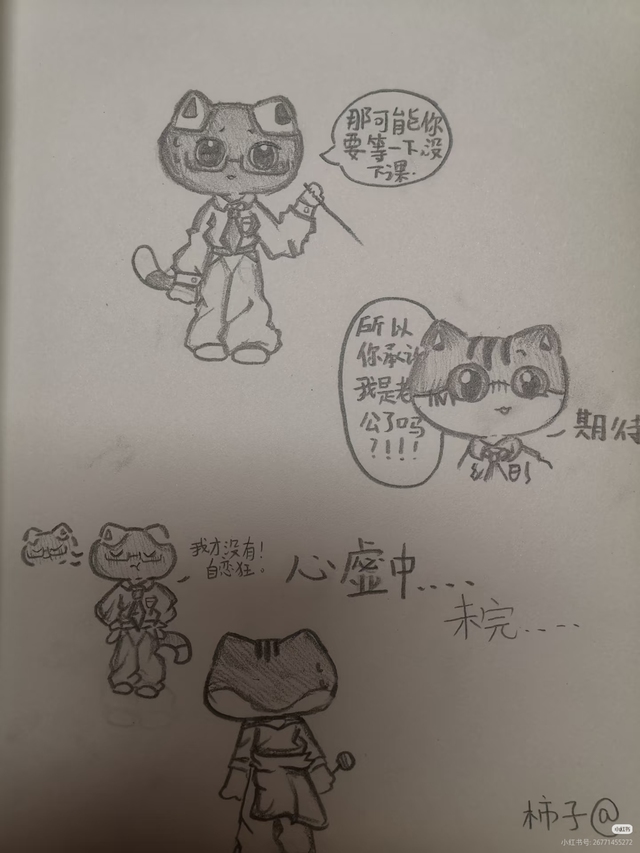 那可能你
要等一下没
下课.
所以
你承认
我是老
公了吗
?!!!
期待
我才没有!
自恋狂.
心虚中....
未完....
柿子@
小红书
小红书号: 26771455272